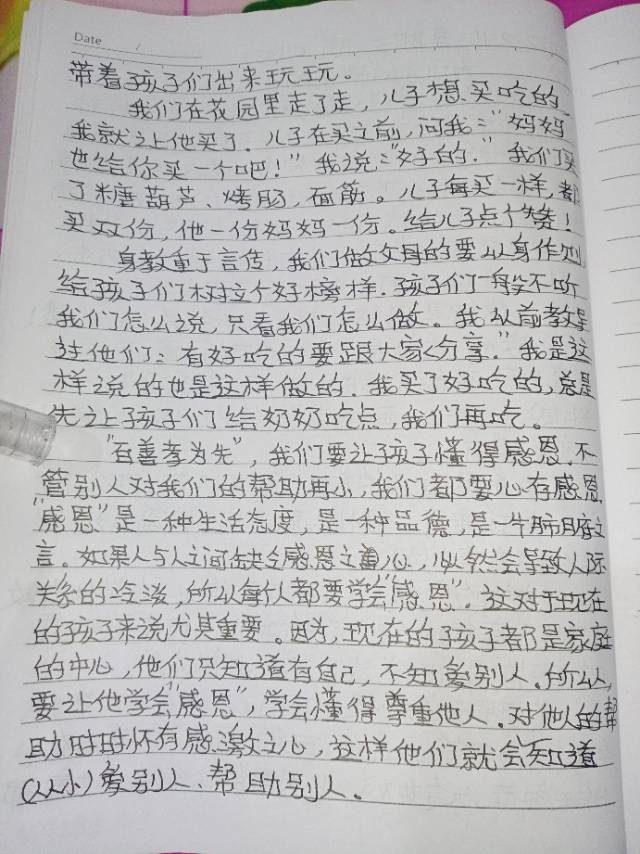 Date
带着孩子们出来玩玩。
我们在花园里走了走，儿子想买吃的
我就让他买了。儿子在买之前，问我："妈妈
也给你买一个吧！"我说："好的。"我们买
了糖葫芦、烤肠、面筋。儿子每买一样，都
买双份，他一份妈妈一份。给儿子点个赞！
身教重于言传，我们做父母的要以身作则
给孩子们树立个好榜样。孩子们一般不听
我们怎么说，只看我们怎么做。我从前教导
过他们：有好吃的要跟大家分享。"我是这
样说的也是这样做的。我买了好吃的，总是
先让孩子们给奶奶吃点，我们再吃。
"百善孝为先"，我们要让孩子懂得感恩。不
管别人对我们的帮助再小，我们都要心存感恩。
"感恩"是一种生活态度，是一种品德，是一片肺腑之
言。如果人与人之间缺乏感恩之心，必然会导致人际
关系的冷淡，所以每个人都要学会"感恩"。这对于现在
的孩子来说尤其重要。因为，现在的孩子都是家庭
的中心，他们只知道有自己，不知爱别人。所以，
要让他学会"感恩"，学会懂得尊重他人。对他人的帮
助时时怀有感激之心，这样他们就会知道
（从小）爱别人、帮助别人。